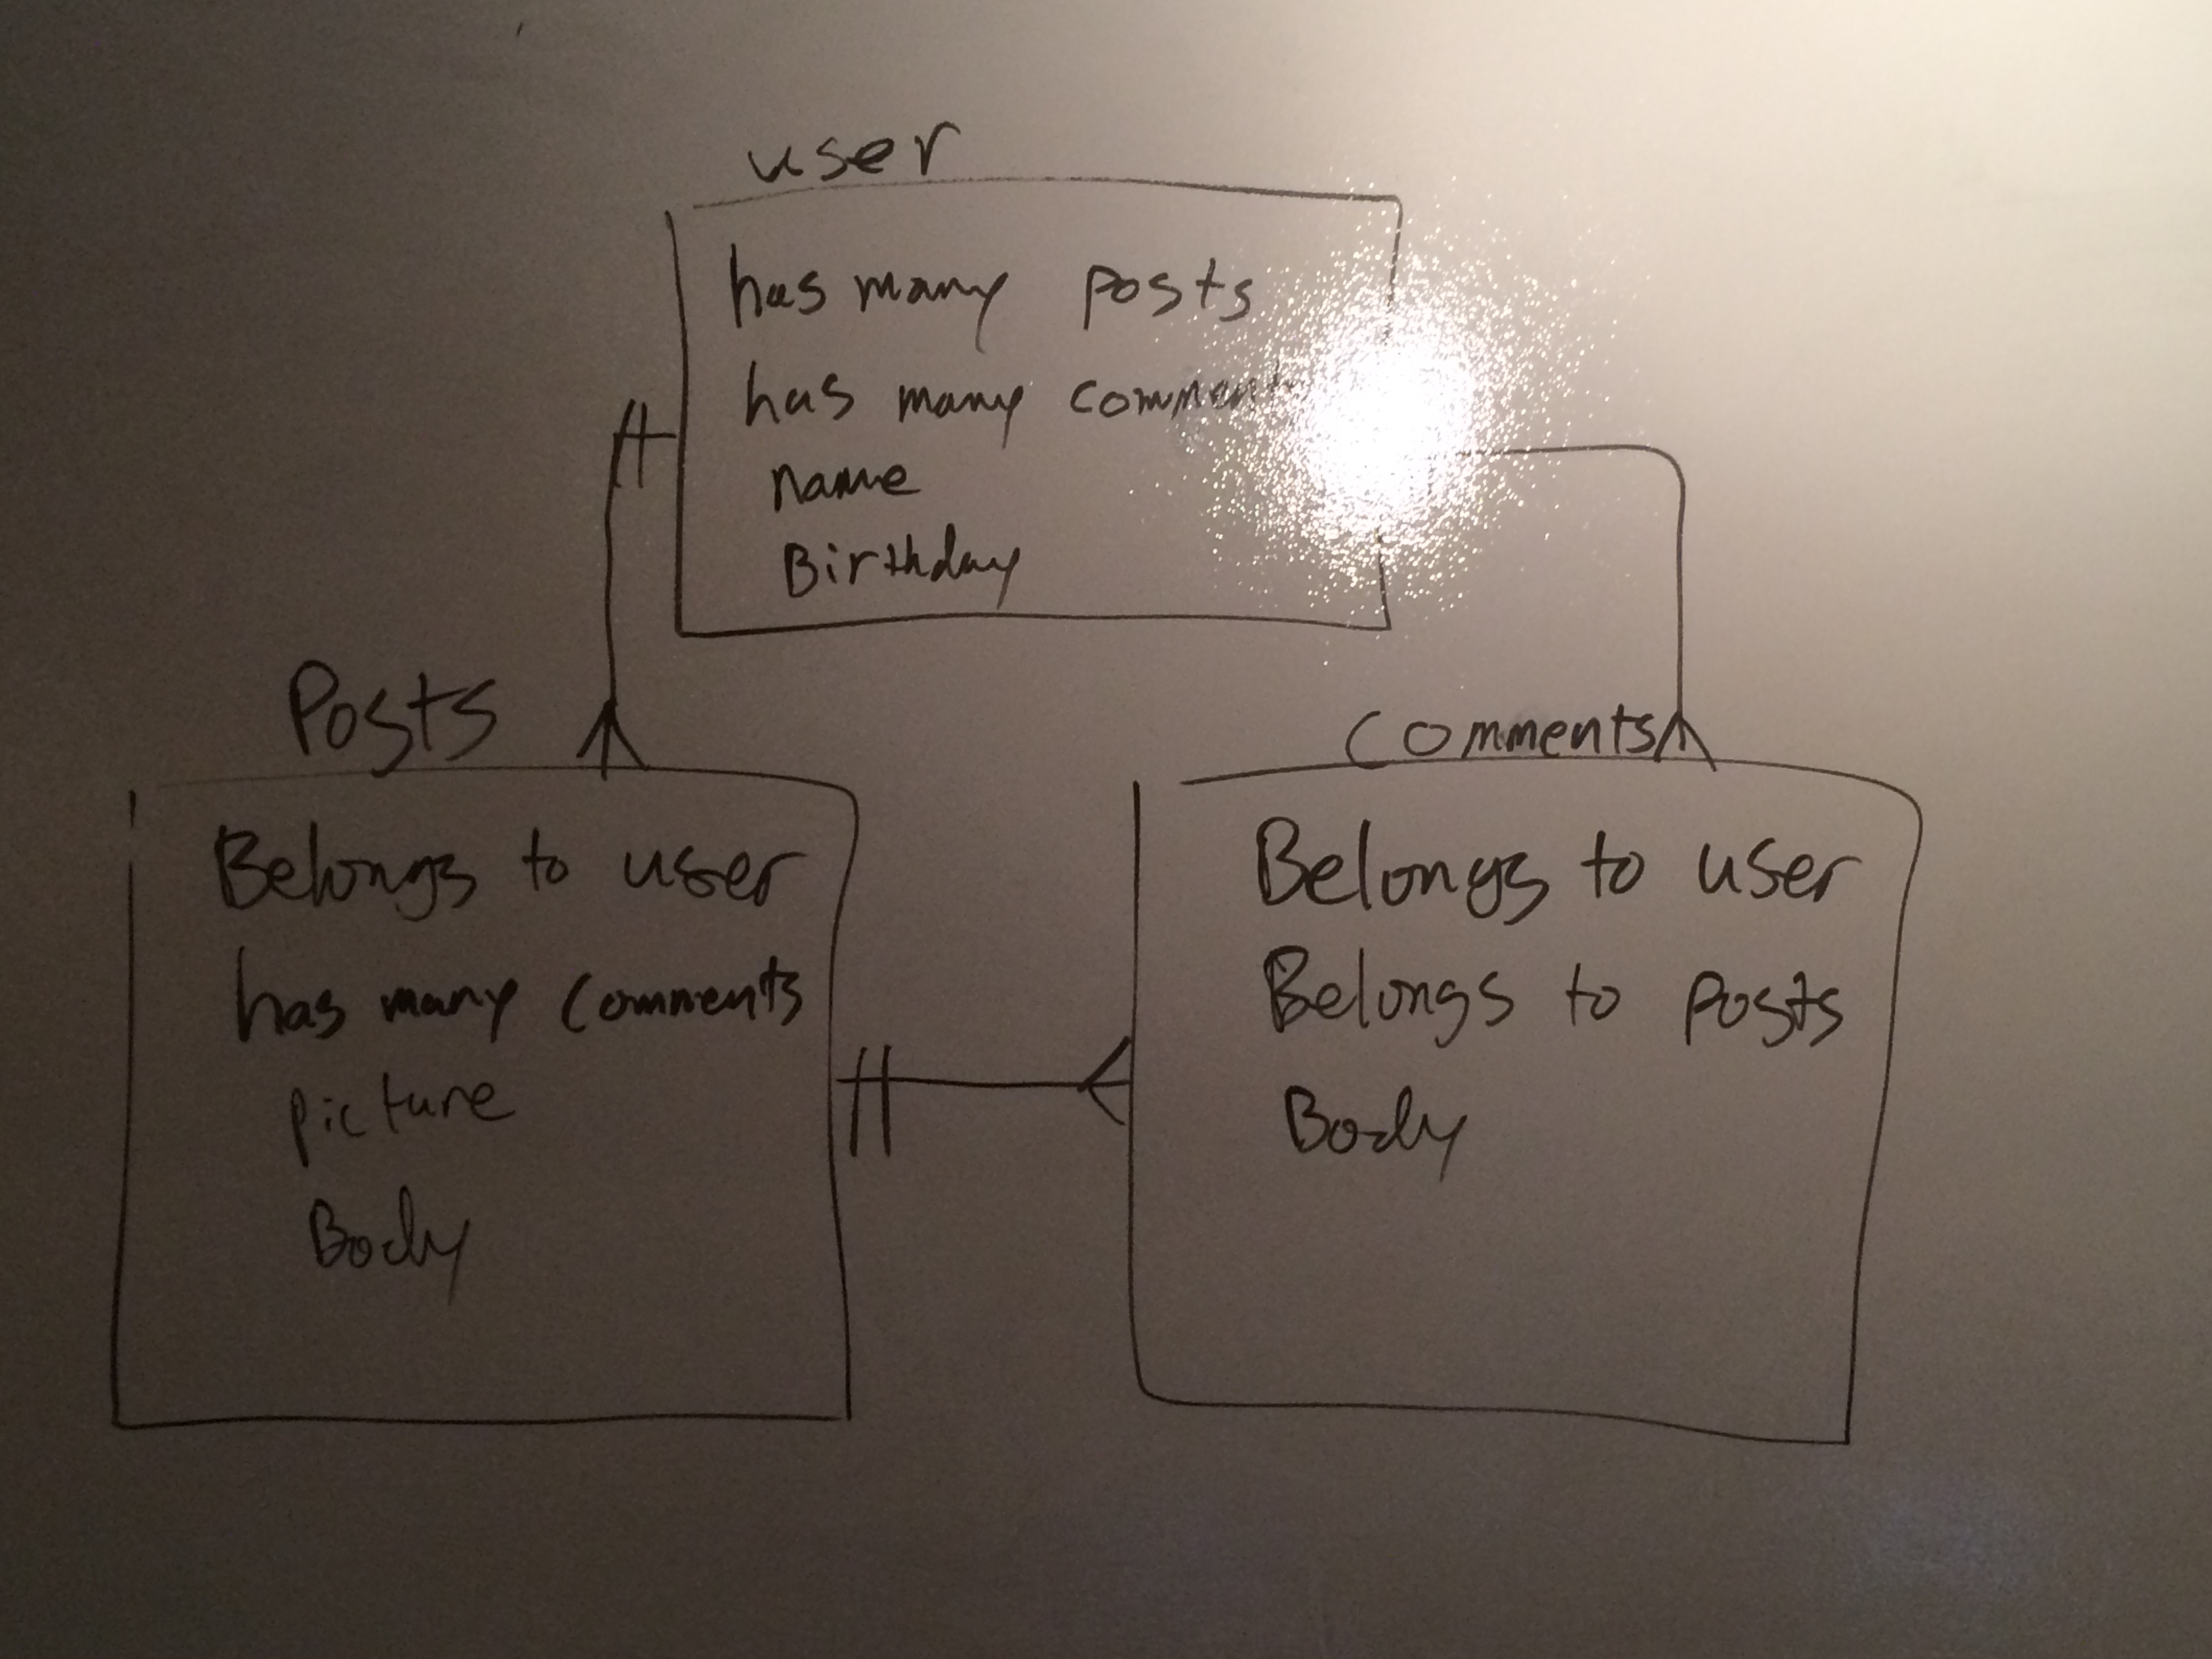 user
has many posts
has many comments
name
Birthday
Posts
Belongs to user
has many comments
picture
Body
comments
Belongs to user
Belongs to posts
Body